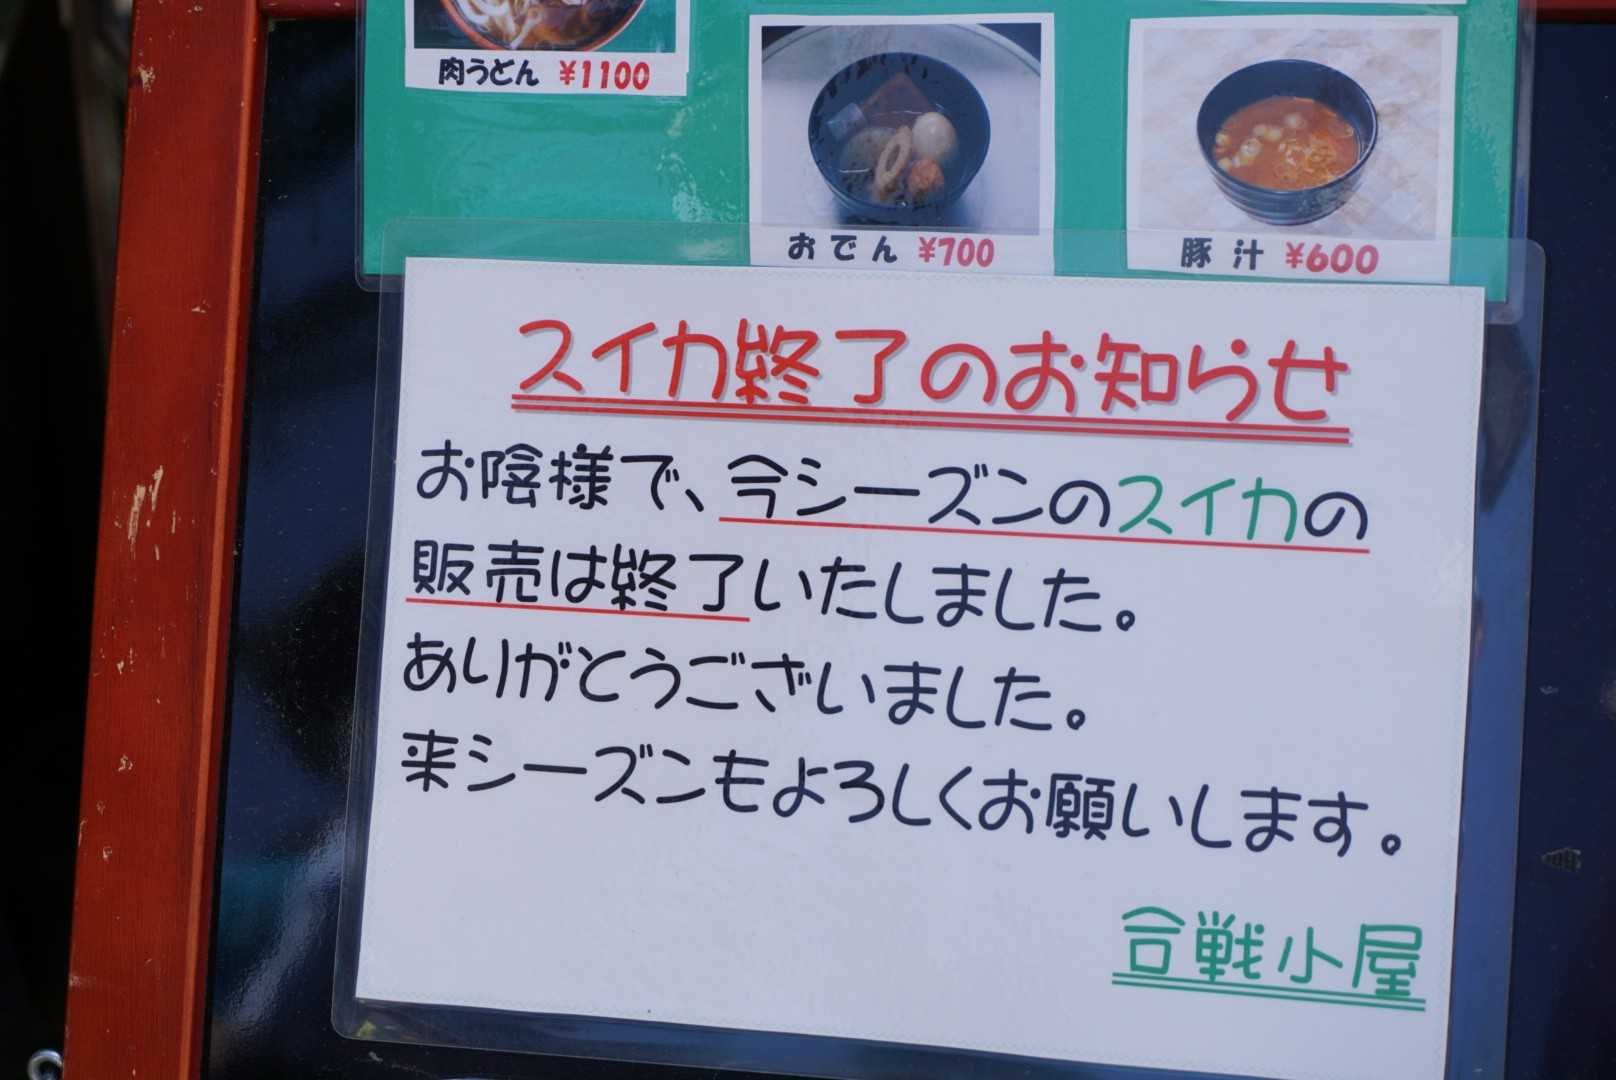 肉うどん ¥1100
おでん ¥700
豚汁 ¥600
スイカ終了のお知らせ
お陰様で、今シーズンのスイカの
販売は終了いたしました。
ありがとうございました。
来シーズンもよろしくお願いします。
合戦小屋